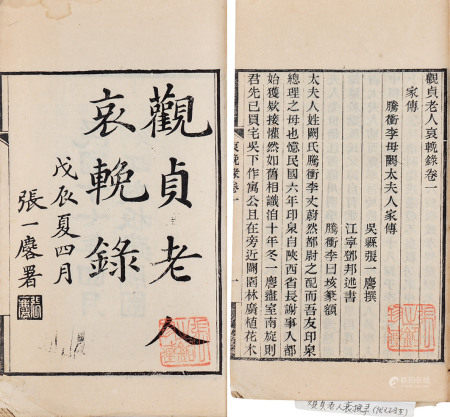 觀貞老人
哀輓錄
戊辰夏四月
張一麐署
觀貞老人哀輓錄卷一
家傳
騰衝李母闕太夫人家傳
吳縣張一麐撰
江寧鄧邦述書
騰衝李曰垓篆額
太夫人姓闕氏騰衝李丈蔚然都尉之配而吾友印泉
總理之母也憶民國六年印泉自陝西省長謝事入都
始獲欵接懽然如舊相識洎十年冬一麐盡室南旋則
君先已買宅吳下作寓公且在旁近闢園林廣植花木
哀輓錄卷一